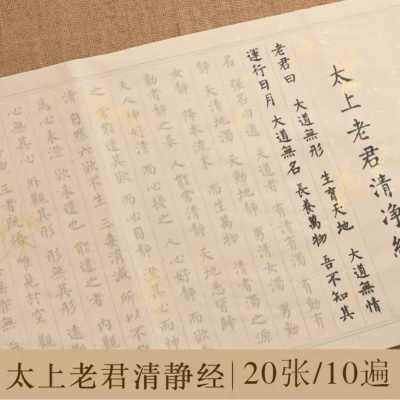 太上老君清净經
老君曰 大道無形 生育天地 大道無情
運行日月 大道無名 長養萬物 吾不知其
名 強名曰道 夫道者 有清有濁 有動有
靜 天清地濁 天動地靜 男清女濁 男動
女靜 降本流末 而生萬物 清者濁之源
動者靜之基 人能常清靜 天地悉皆歸
夫人神好清 而心擾之 人心好靜 而欲
之 常能遣其欲 而心自靜 澄其心
清 自然六欲不生 三毒消滅 所以不
為心未澄 欲未遣也 能遣之者 內觀
心無其心 外觀其形 形無其形 遠
物 三者既悟 唯見於空 觀
太上老君清静经|20张/10遍